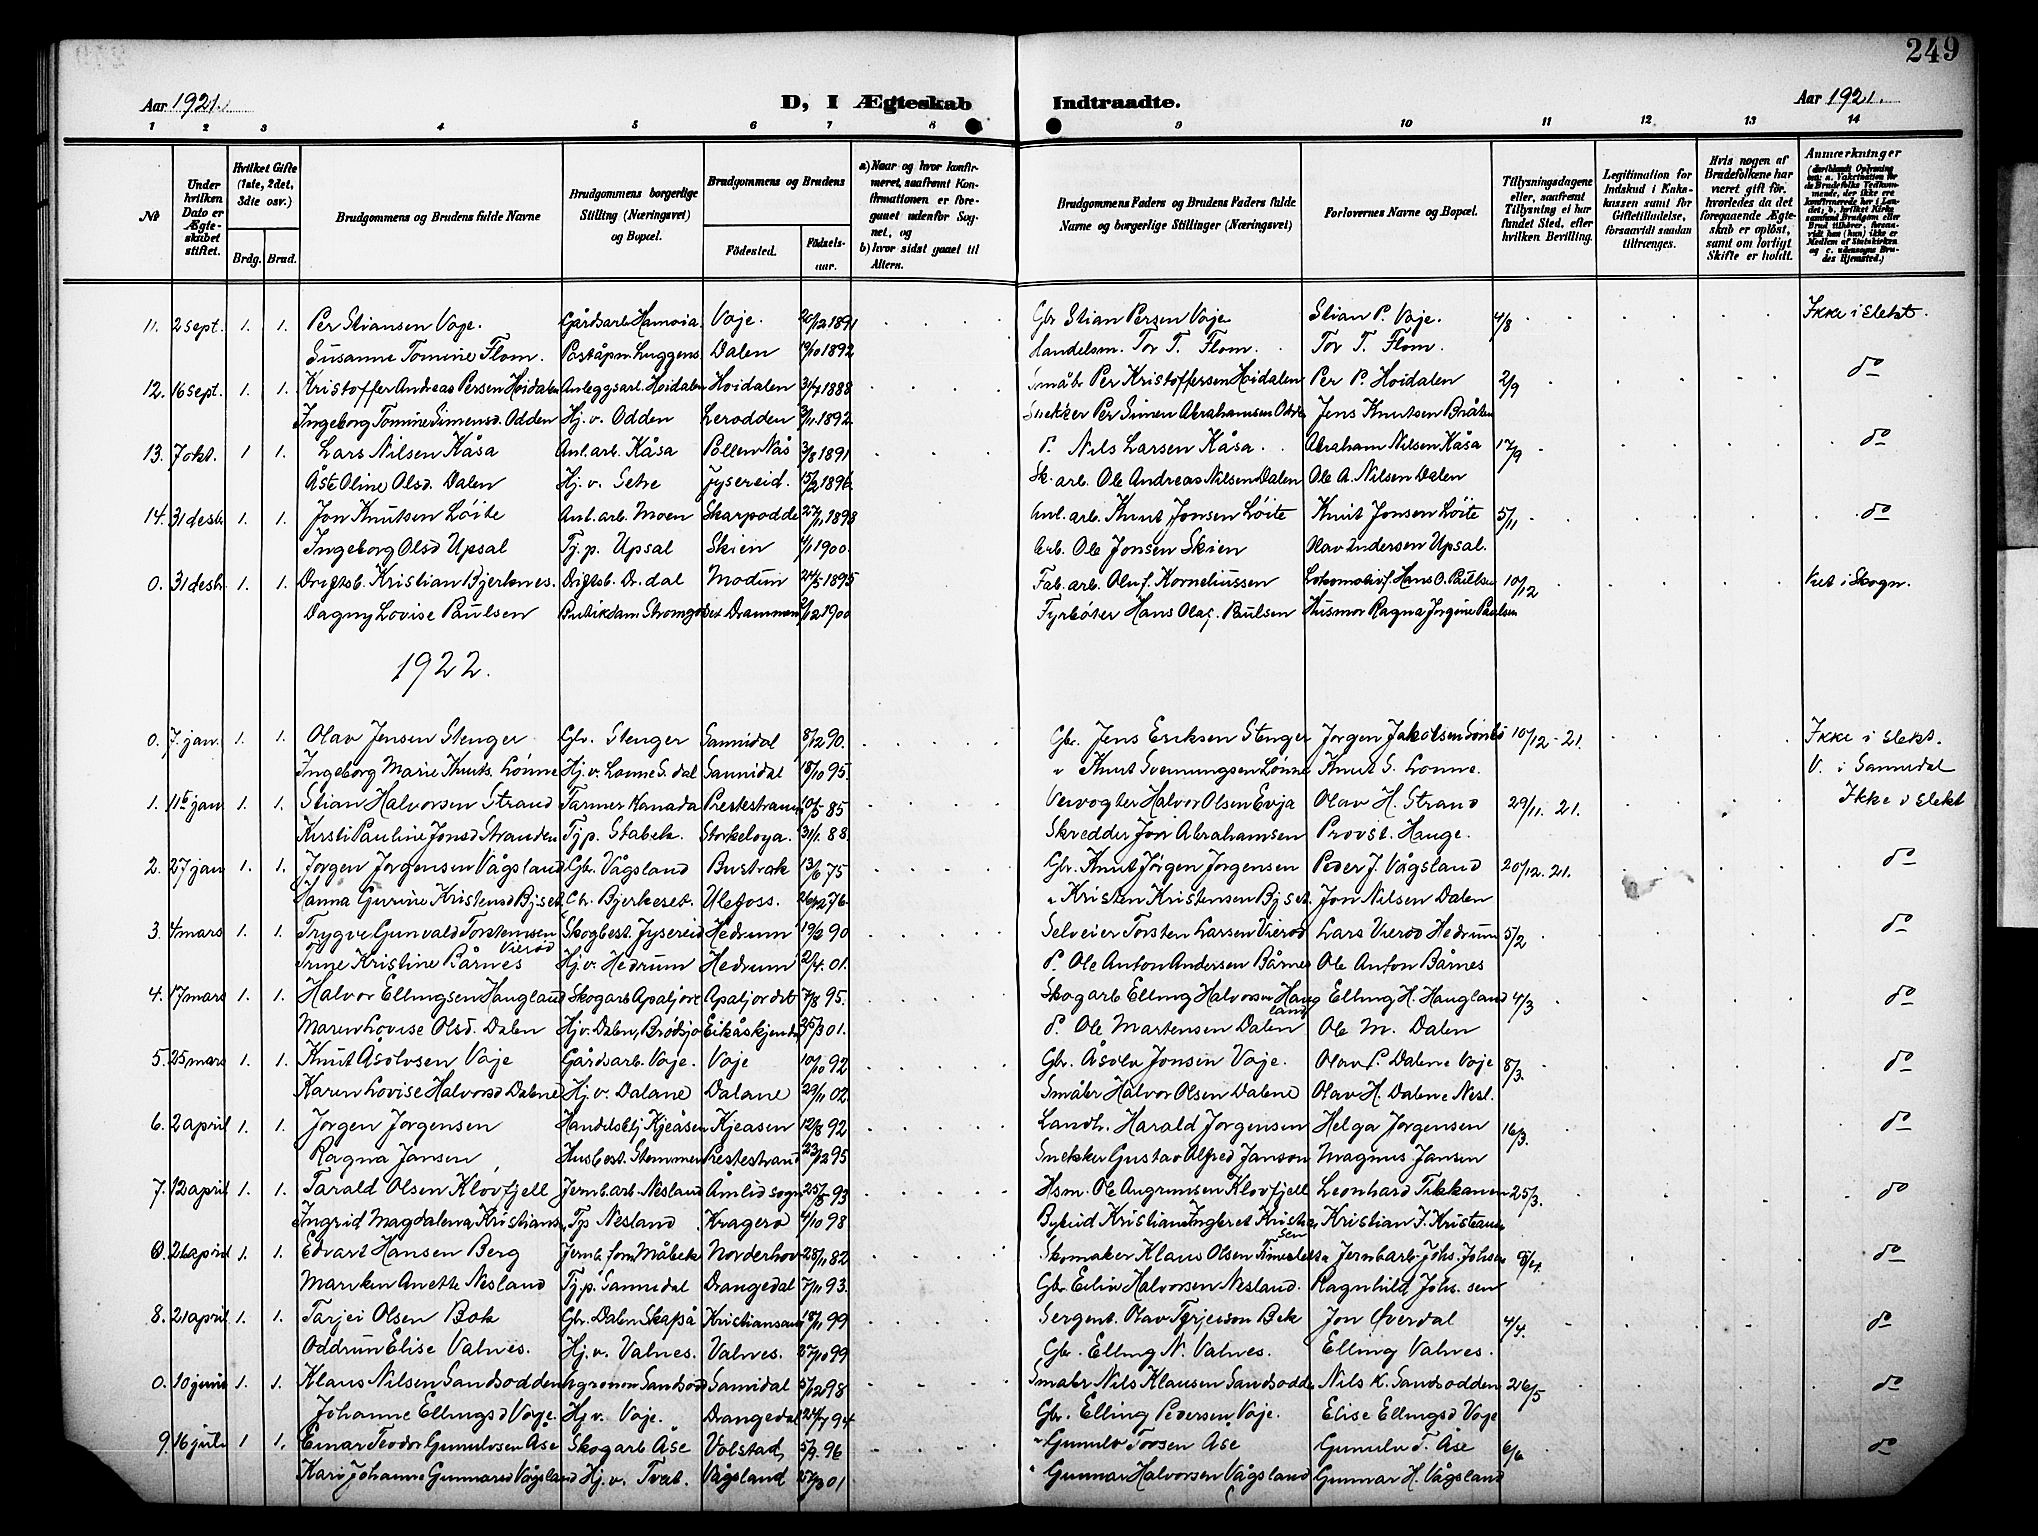 249
Aar 1921. D, I Ægteskab Indtraadte. Aar 1921.
1 2 3 4 5 6 7 8 9 10 11 12 13 14
№
Under hvilken Dato er Ægteskabet stiftet.
Hvilket Gifte (1ste, 2det, 3die osv.)
Brdg. Brud.
Brudgommens og Brudens fulde Navne
Brudgommens borgerlige Stilling (Næringsvei) og Bopæl.
Brudgommens og Brudens
Födested. Födselsaar.
a) Naar og hvor konfirmeret, saafremt Konfirmationen er foregaaet udenfor Sognet, og
b) hvor sidst gaaet til Alters.
Brudgommens Faders og Brudens Faders fulde Navne og borgerlige Stillinger (Næringsvei)
Forlovernes Navne og Bopæl.
Tillysningsdagene eller, saafremt Tillysning ei har fundet Sted, efter hvilken Bevilling.
Legitimation for Indskud i Enkekassen samt for Giftetilladelse, forsaavidt saadan tiltrænges.
Hvis nogen af Brudefolkene har været gift för, hvorledes da det foregaaende Ægteskab er oplöst, samt om lovligt Skifte er holdt.
Anmærkninger
11. 2 sept. 1. 1. Per Stiansen Voje. Gårdsarb. Voje. 20/12 1891 Gbr Stian Persen Voje Stian P. Voje. 4/8 Ikke i slekt.
Susanne Tomine Flom. Dalen 19/10 1892 Handelsm. Tor T. Flom. Tor T. Flom.
12. 16 sept. 1. 1. Kristoffer Andreas Persen Hoidalen Anleggsarb. Hoidalen Hoidalen 1888 Småbr Per Kristoffersen Hoidalen Per P. Hoidalen 2/9 do
Ingeborg Tomine Simensd. Odden Hj. v. Odden Lerodden 1892 Snekker Per Simen Abrahamsen Jens Knutsen Bråten
13. 7 okt. 1 1. Lars Nilsen Kåsa Anl. arb. Kåsa Pollen Nås 3/8 1891 P. Nils Larsen Kåsa. Abraham Nilsen Kåsa 17/9 do
Åste Oline Olsd. Dalen Hj. v. Setre Jysereid. 15/2 1896 Sk. arb. Ole Andreas Nilsen Dalen Ole A. Nilsen Dalen
14. 31 desb. 1. 1. Jon Knutsen Löite Anl. arb. Moen Skarpodde 27/11 1898 Anl. arb. Knut Jonsen Löite Knut Jonsen Löite 5/11 do
Ingeborg Olsd Upsal Tj. p. Upsal Skien 4/1 1900. Arb. Ole Jonsen Skien Olav Andersen Upsal.
0. 31 desb. 1. 1. Kristian Bjerknes. Modum 24/5 1895 Fab. arb. Oluf Korneliussen Hans O. Paulsen 10/12 Viet i Skogn.
Dagny Lovise Paulsen Drammen 1900 Fyrböter Hans Olaf Paulsen Husmor Ragna Jorgine Paulsen
1922.
0. 7. jan. 1. 1. Olav Jensen Stenger Gbr. Stenger Sannidal 8/12 90. Gbr. Jens Eriksen Stenger Jorgen Jakobsen 10/12 - 21. Ikke i slekt.
Ingeborg Marie Knuts. Lönne Hj. v. Lonne S. dal Sannidal 18/10 95. " Knut Svennungsen Lönne Knut S. Lonne. V. i Sannidal
1. 11te jan 1. 1. Stian Halvorsen Strand Farmer Kanada Prestestranna 10/5 85 Veivogter Halvor Olsen Evja Olav H. Strand 29/11. 21. Ikke i slekt
Kirsti Pauline Jonsd Stranden Tj. p. Stabek. Storkeloya. 31/1. 88. Skredder Jon Abrahamsen Provst. Hauge.
2. 27 jan 1. 1. Jorgen Jorgensen Vågsland Gbr. Vågsland Bustrak 13/6 75 Gbr. Knut Jörgen Jorgensen Peder J. Vågsland 20/12. 21. do
Hanna Gurine Kristensd Bjset. Gbr. Bjerkeset. Ulefoss. 76 " Kristen Kristensen Bjset Jon Nilsen Dalen
3. 4 mars 1. 1. Trygve Gunvald Torstensen Vierod Skogbest. Jysereid Hedrum 19/2 90 Selveier Torsten Larsen Vierod Lars Vierod Hedrum 5/2 do
Trine Kristine Bårnes Hj. v. Hedrum Hedrum 2/4. 01. P. Ole Anton Andersen Bårnes Ole Anton Bårnes
4. 17 mars 1. 1. Halvor Ellingsen Haugland Skogarb Apaljore Apaljordet 7/8 95. Skogarb Elling Halvorsen Haugland Elling H. Haugland 4/3 do
Maren Lovise Olsd. Dalen Hj. v. Dalen, Brödsjo Eikåskjendet 01. P. Ole Martensen Dalen Ole M. Dalen
5. 25 mars 1. 1. Knut Åsolvsen Voje Gårdsarb. Voje. Voje 10/10 92 Gbr. Åsolv Jonsen Voje. Olav P. Dalene Voje 8/3. do
Karen Lovise Halvorsd Dalene Hj. v. Dalane Dalane 29/11 02 Småbr Halvor Olsen Dalene Olav H. Dalene Nesl.
6. 2 april 1. 1. Jorgen Jorgensen Handelsbtj Kjeåsen Kjeasen 12/8 92 Landh. Harald Jorgensen Helga Jorgensen 16/3. do
Ragna Jansen Husbest. Stemmen Prestestrand 23/12 95 Snekker Gustav Alfred Janson Magnus Jansen
7. 12 april 1. 1. Tarald Olsen Klovfjell Jernb. arb. Nesland Åmlid sogn 93 Hsm. Ole Angrimsen Klovfjell Leonhard Tikkanen 25/3. do
Ingrid Magdalena Kristians. Tjp Nesland Kragerø 4/10 98 Kristian Ingbret Kristiansen Kristian I. Kristiansen
0. 1. 1. Edvart Hansen Berg Norderhov 28/11 82 Skomaker Klaus Olsen Jernbarb Johs. Johsen do
Mariken Anette Nesland Tj. p. Sannidal Drangedal 7/11 93. Gbr Eiliv Halvorsen Nesland. Ragnhild Johs. sen
8. 21 april 1. 1. Tarjei Olsen Bok Gbr. Dalen Skapså Kristiansand 18/11 99 Sergent. Olav Terjeison Bek Jon Överdal 4/4. do
Oddrun Elise Valnes. Hj. v. Valnes. Valnes. 27/10 99 Gbr. Elling N. Valnes. Elling Valnes.
0. 10 juni 1. 1. Klaus Nilsen Sandsodden Agronom Sandsod Sannidal 5/12 98 Småbr Nils Klausen Sandsodde Nils K. Sandsodden 26/5 do
Johanne Ellingsd Voje. Hj v. Voje. Drangedal 94 Gbr. Elling Pedersen Voje. Elise Ellingsd Voje
9. 16 juli 1 1. Einar Teodor Gunulvsen Åse Skogarb Åse Volstad, 96 " Gunulv Torsen Åse Gunulv T. Åse 6/6 do
Kari Johanne Gunnarsd Vågsland Hj. v. Tveit. Vågsland 27/3 01 " Gunnar Halvorsen Vågsland Gunnar H. Vågsland